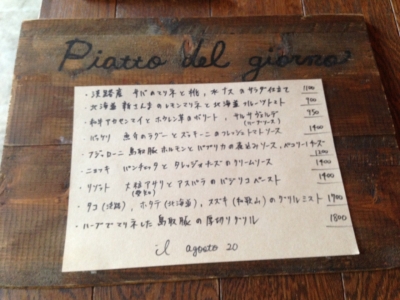 Piatto del giorno
・淡路産 サバのマリネと桃、水ナスのサラダ仕立て 1100
・北海道 新さんまのレモンマリネと北海道フルーツトマト 900
・和牛アカセンマイとホウレン草のボリート、サルサヴェルデ 950
(ハーブソース)
・バッケリ 魚介のラグーとズッキーニのフレッシュトマトソース 1400
・フジローニ 鳥取豚ホルモンとパプリカの煮込みソース、ペコリーノチーズ 1300
・ニョッキ パンチェッタとタレッジョチーズのクリームソース 1400
・リゾット 大粒アサリとアスパラのバジリコペースト 1400
・タコ(淡路)、ホタテ(北海道)、スズキ(和歌山)のグリルミスト 1900
・ハーブでマリネした鳥取豚の厚切りグリル 1800
il agosto 20